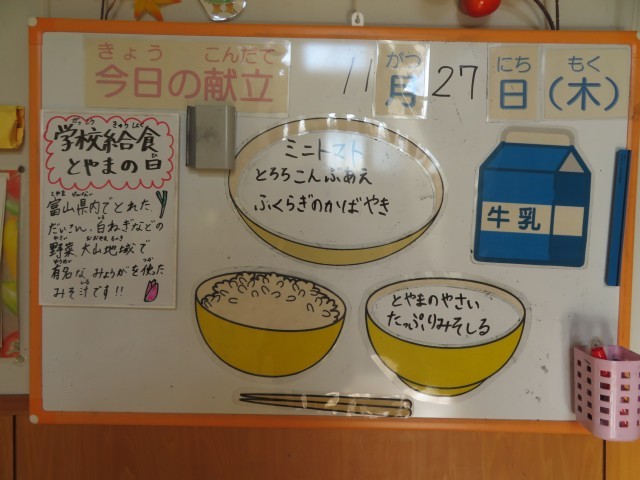 きょう こんだて
今日の献立
11月27日(木)
がつ にち もく
がっこう きゅうしょく
学校給食
とやまの日
富山県内でとれた
だいこん、白ねぎなどの
野菜、大山地域で
有名な みょうがを使た
みそ汁です!!
ミニトマト
とろろこんぶあえ
ふくらぎのかばやき
とやまのやさい
たっぷりみそしる
牛乳